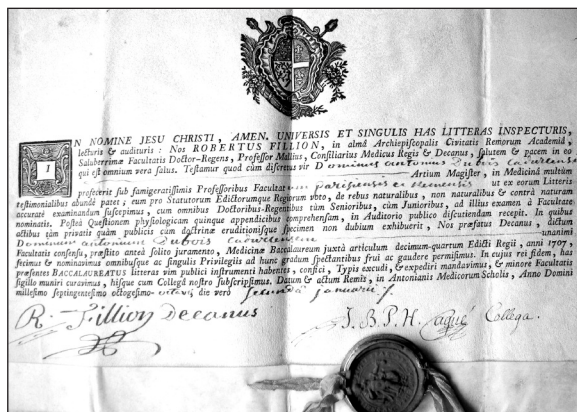 IN NOMINE JESU CHRISTI, AMEN. UNIVERSIS ET SINGULIS HAS LITTERAS INSPECTURIS,
lecturis & audituris : Nos ROBERTUS FILLION, in almâ Archiepiscopalis Civitatis Remorum Academiâ,
Saluberrimæ Facultatis Doctor-Regens, Professor Consiliarius Medicus Regis & Decanus, salutem & pacem in eo
qui est omnium vera salus. Testamur quod cùm discretus vir Dominus antonius Dubois
Artium Magister, in Medicinâ multùm
profecerit sub famigeratissimis Professoribus Facultatum parisiensis et Remensis ut ex eorum Litteris
testimonialibus abundè patet; eum pro Statutorum Edictorumque Regiorum voto, de rebus naturalibus, non naturalibus & contrà naturam
accuratè examinandum suscepimus, cum omnibus Doctoribus-Regentibus tàm Senioribus, cùm Junioribus, ad illius examen à Facultate
nominatis. Posteà Quæstionem physiologicam quinque appendicibus comprehensam, in Auditorio publico discutiendam recepit. In quibus
actibus tàm privatis quàm publicis cùm doctrinæ eruditionisque specimen non dubium exhibuerit, Nos præfatus Decanus, dictum
Dominum antonium Dubois unanimi
Facultatis consensu, præstito anteà solito juramento, Medicinæ Baccalaureum juxtà articulum decimum-quartum Edicti Regii, anni 1707,
fecimus & nominavimus omnibusque ac singulis Privilegiis ad hunc gradum spectantibus frui ac gaudere permisimus. In cujus rei fidem, has
præsentes BACCALAUREATUS litteras vim publici instrumenti habentes, confici, Typis excudi, & expediri mandavimus, & minore Facultatis
sigillo muniri curavimus, hisque cum Collegâ nostro subscripsimus. Datum & actum Remis, in Antonianis Medicorum Scholis, Anno Domini
millesimo septingentesimo octogesimo- octavo, die verò secunda januarii
R. Fillion Decanus
J. B. P. H. Caqué Collega.